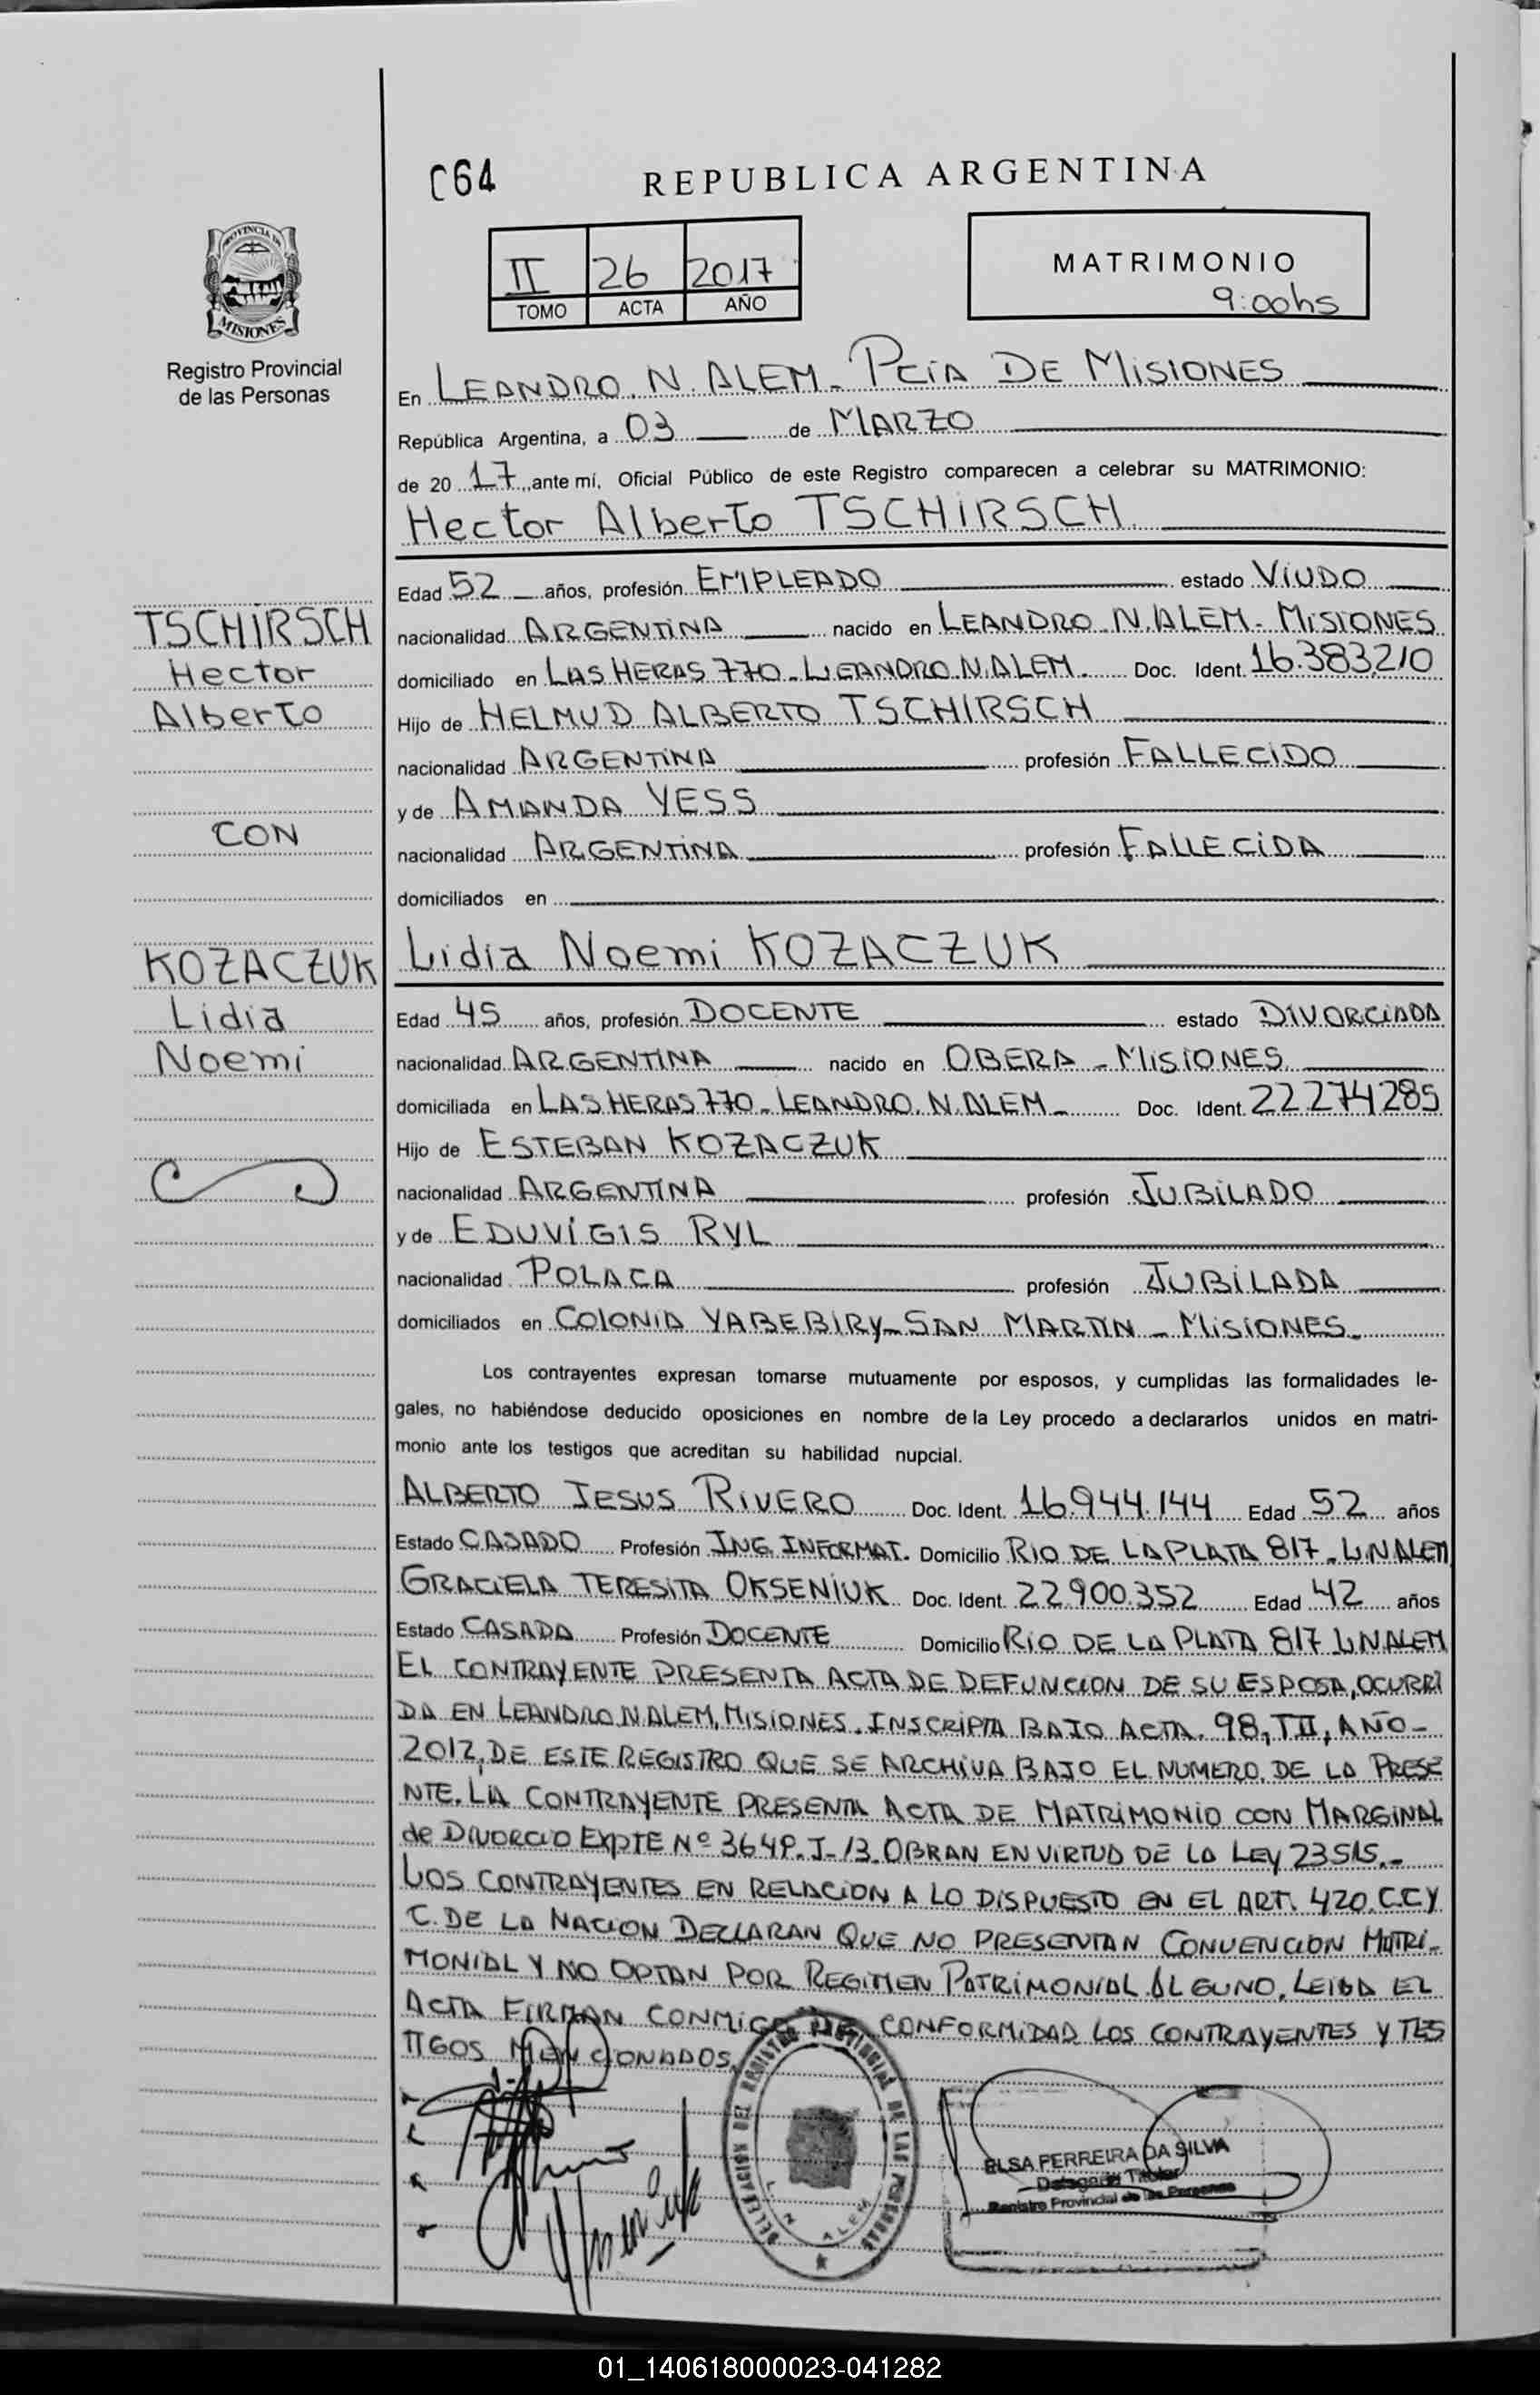 C64
REPUBLICA ARGENTINA
PROVINCIA DE
MISIONES
Registro Provincial
de las Personas
II 26 2017
TOMO ACTA AÑO
MATRIMONIO
9:00hs
En LEANDRO. N. ALEM - PCIA DE MISIONES
República Argentina, a 03 de MARZO
de 20 17, ante mí, Oficial Público de este Registro comparecen a celebrar su MATRIMONIO:
Hector Alberto TSCHIRSCH
Edad 52 años, profesión EMPLEADO estado VIUDO
TSCHIRSCH
Hector
Alberto
nacionalidad ARGENTINA nacido en LEANDRO N. ALEM - MISIONES
domiciliado en LAS HERAS 770 - LEANDRO N. ALEM. Doc. Ident. 16.383.210
Hijo de HELMUD ALBERTO TSCHIRSCH
nacionalidad ARGENTINA profesión FALLECIDO
y de AMANDA YESS
CON
nacionalidad ARGENTINA profesión FALLECIDA
domiciliados en
Lidia Noemi KOZACZUK
KOZACZUK
Lidia
Noemi
Edad 45 años, profesión DOCENTE estado DIVORCIADA
nacionalidad ARGENTINA nacido en OBERA - MISIONES
domiciliada en LAS HERAS 770 - LEANDRO. N. ALEM - Doc. Ident. 22274285
Hijo de ESTEBAN KOZACZUK
nacionalidad ARGENTINA profesión JUBILADO
y de EDUVIGIS RYL
nacionalidad POLACA profesión JUBILADA
domiciliados en COLONIA YABEBIRY - SAN MARTIN - MISIONES -
Los contrayentes expresan tomarse mutuamente por esposos, y cumplidas las formalidades le-
gales, no habiéndose deducido oposiciones en nombre de la Ley procedo a declararlos unidos en matri-
monio ante los testigos que acreditan su habilidad nupcial.
ALBERTO JESUS RIVERO Doc. Ident. 16.944.144 Edad 52 años
Estado CASADO Profesión ING. INFORMAT. Domicilio RIO DE LA PLATA 817 - L.N.ALEM
GRACIELA TERESITA OKSENIUK Doc. Ident. 22.900.352 Edad 42 años
Estado CASADA Profesión DOCENTE Domicilio RIO DE LA PLATA 817 L.N.ALEM
EL CONTRAYENTE PRESENTA ACTA DE DEFUNCION DE SU ESPOSA, OCURRI
DA EN LEANDRO N ALEM, MISIONES. INSCRIPTA BAJO ACTA. 98, T II, AÑO -
2012, DE ESTE REGISTRO QUE SE ARCHIVA BAJO EL NUMERO DE LA PRESE
NTE. LA CONTRAYENTE PRESENTA ACTA DE MATRIMONIO CON MARGINAL
de DIVORCIO EXPTE Nº OBRAN EN VIRTUD DE LA LEY 23515.-
LOS CONTRAYENTES EN RELACION A LO DISPUESTO EN EL ART. 420. C.C.Y
C. DE LA NACION DECLARAN QUE NO PRESENTAN CONVENCION MATRI-
MONIAL Y NO OPTAN POR REGIMEN PATRIMONIAL ALGUNO. LEIDA EL
ACTA FIRMAN CONMIGO DE CONFORMIDAD LOS CONTRAYENTES Y TES
TIGOS MENCIONADOS.
DELEGACION DEL REGISTRO PROVINCIAL DE LAS PERSONAS
L. N. ALEM
ELSA FERREIRA DA SILVA
Delegada Titular
Registro Provincial de las Personas
01_140618000023-041282